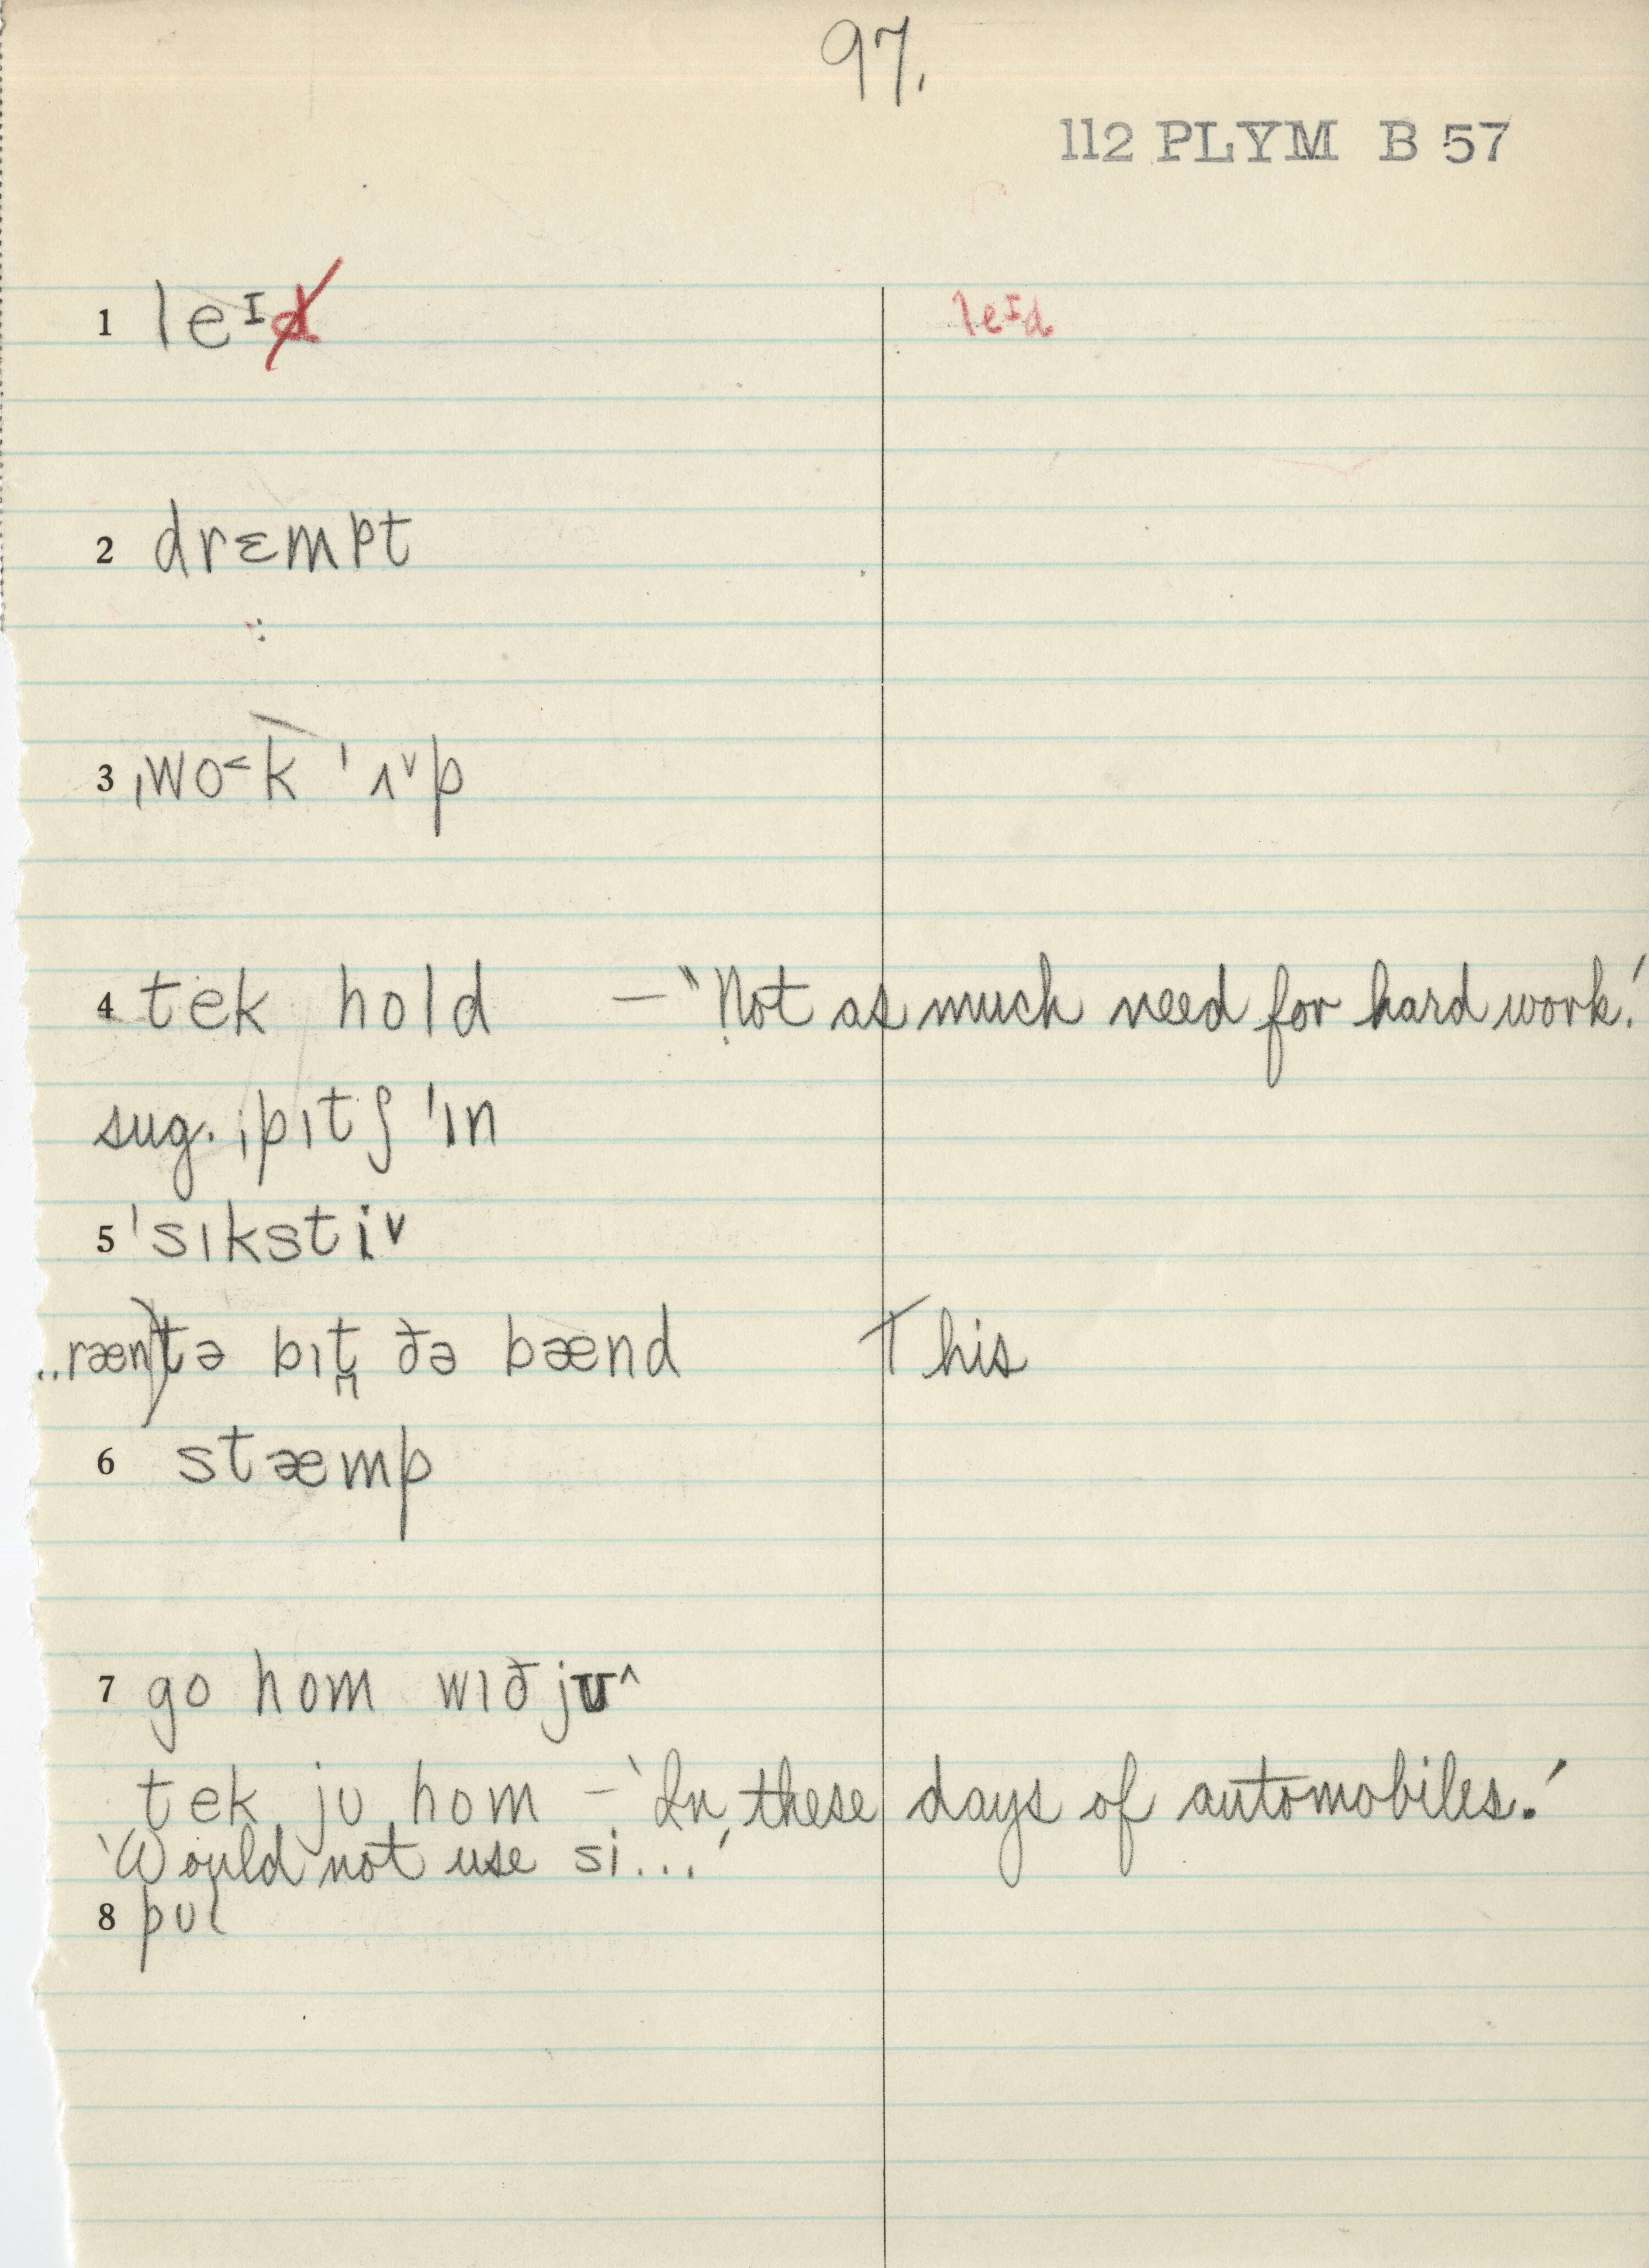 97.
112 PLYM B 57
1 leᴵd leᴵd
2 drɛmpt
3 ˌwo˂k ˈʌ˅p
4 tek hold — 'Not as much need for hard work.'
sug. ˌpɪtʃ ˈɪn
5 ˈsɪksti˅
..ræn) tə bɪt̪ ðə bænd This
6 stæmp
7 go hom wɪð jʊ˄
tek jʊ hom – 'In these days of automobiles.'
'Would not use si...'
8 pʊl